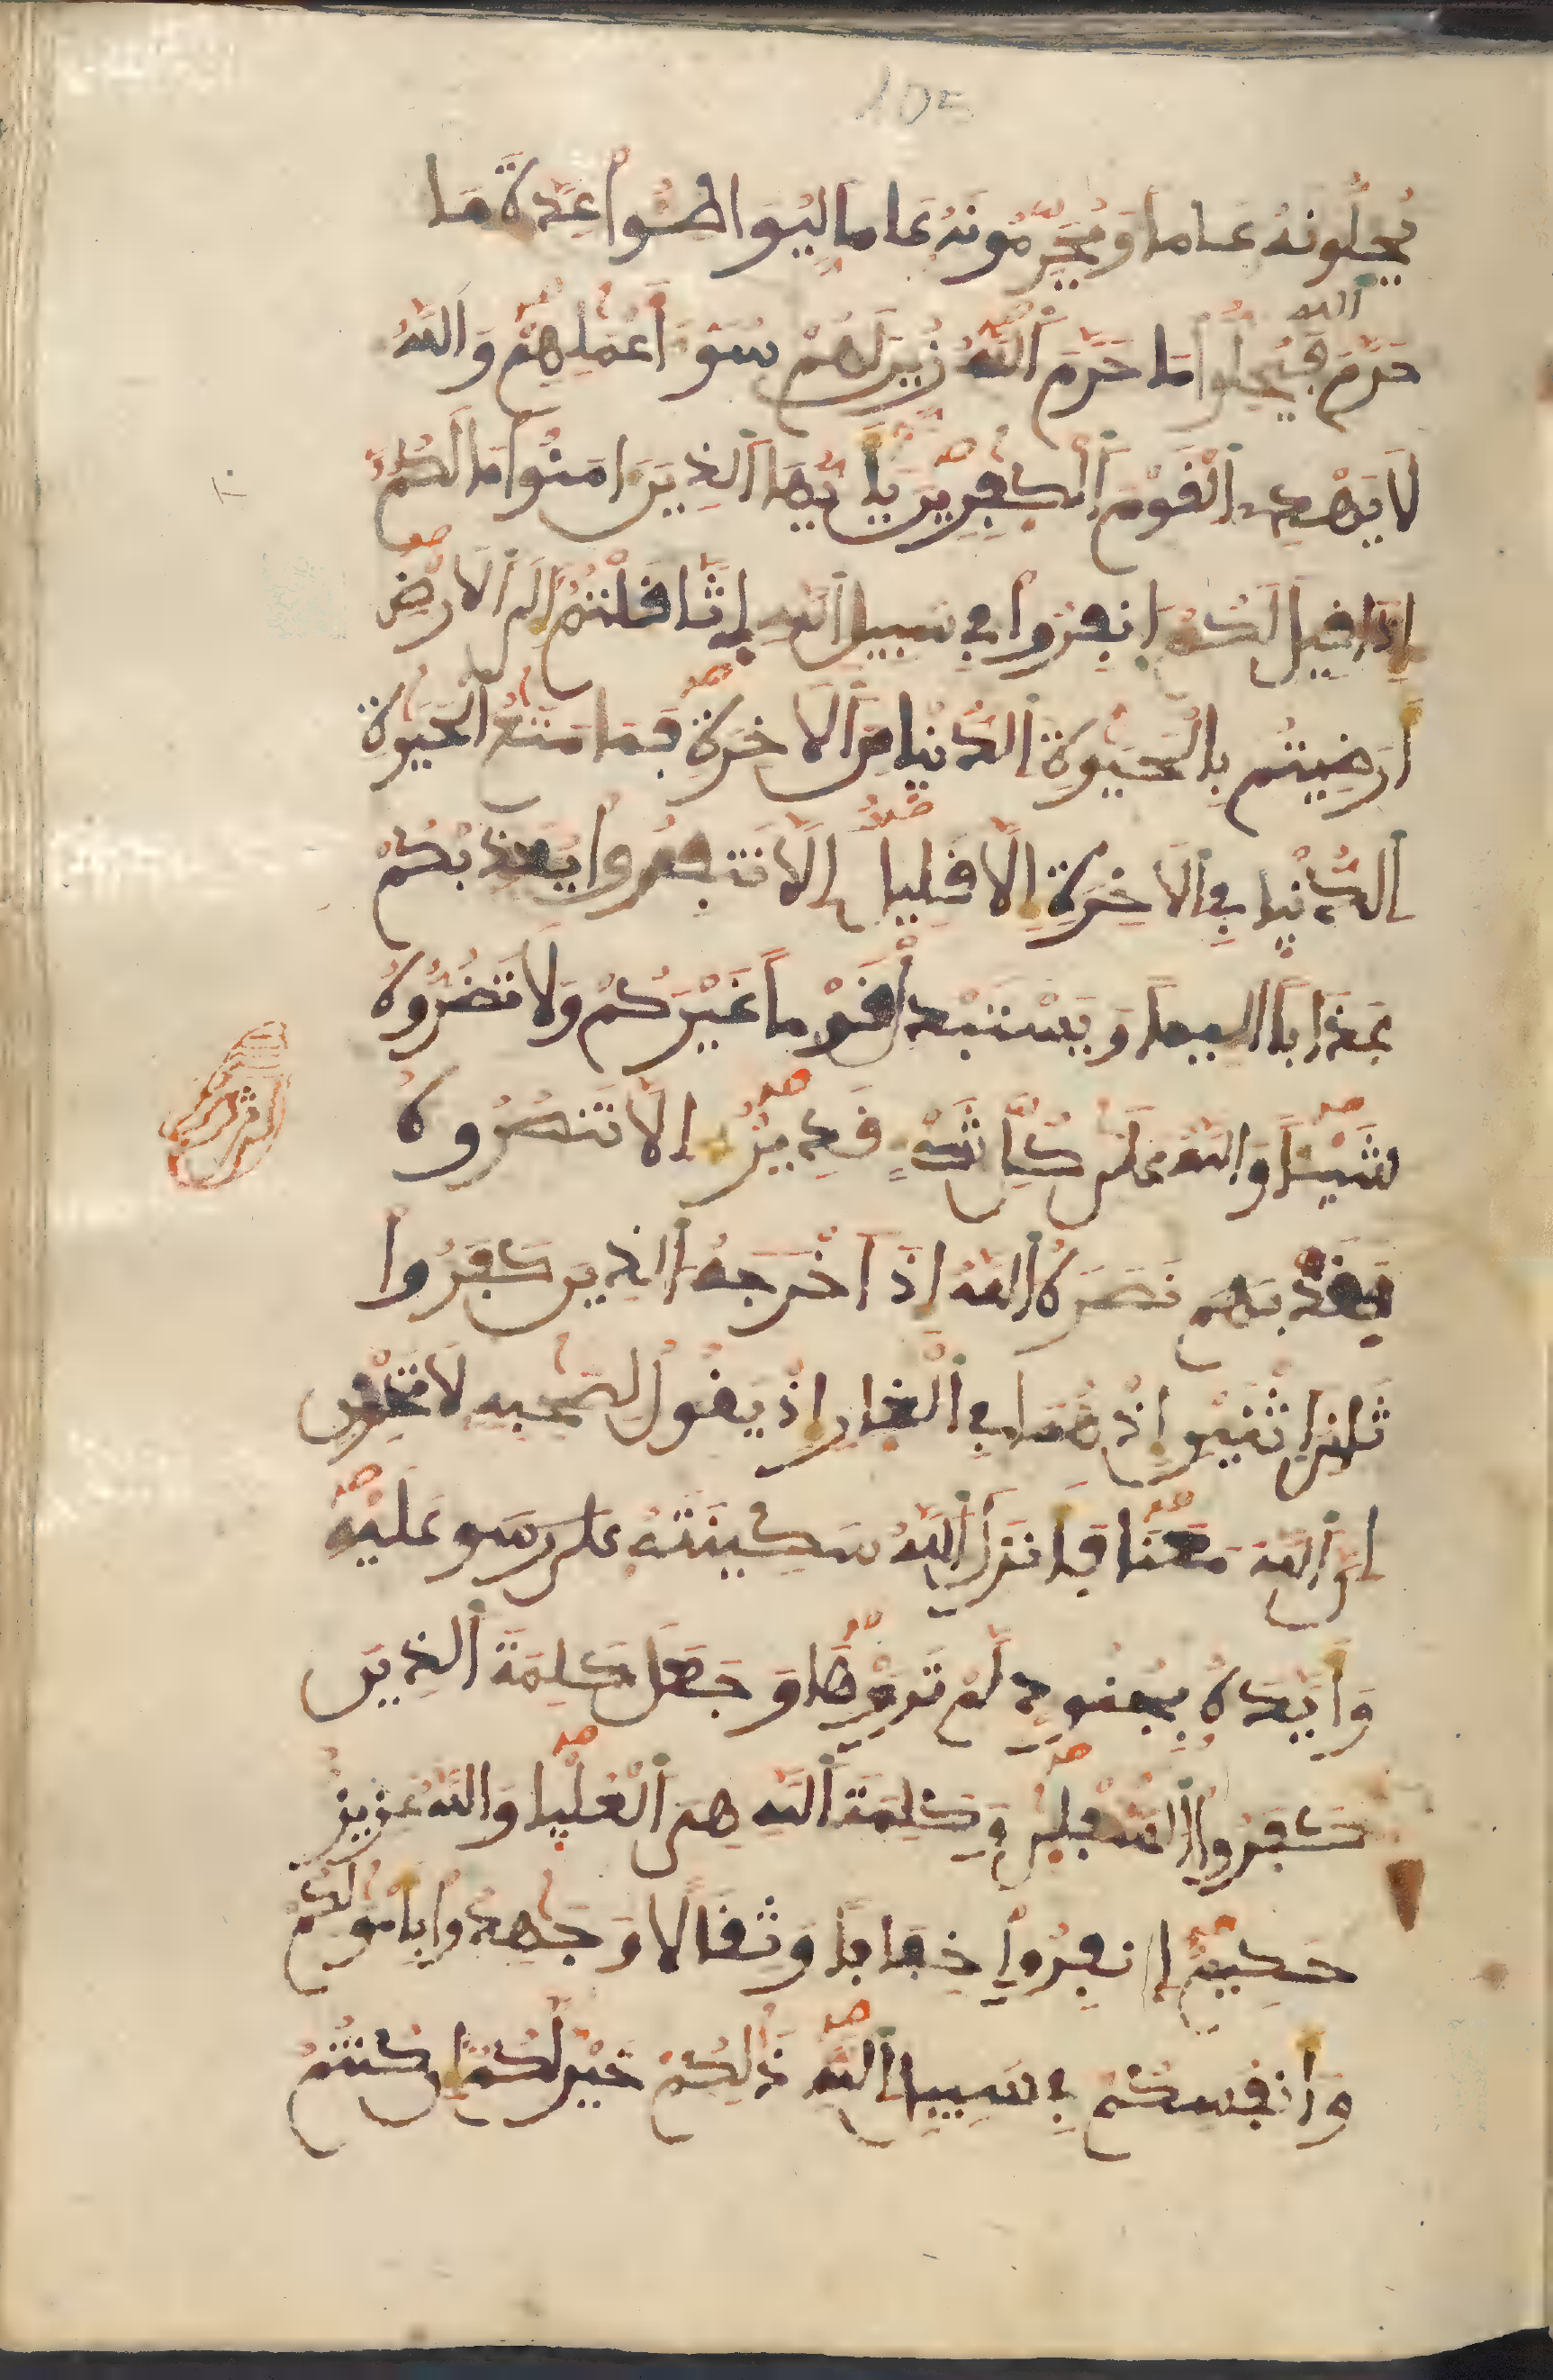 105
يُحِلُّونَهُ عَاما وَيُحَرِّمُونَهُ عَاما لِّيُوَاطِـُٔوا عِدَّةَ مَا
حَرَّمَ اَ۬للَّهُ فَيُحِلُّوا مَا حَرَّمَ اَ۬للَّهُ زُيِّنَ لَهُمْ سُوٓءُ أَعْمَٰلِهِمْ وَاللَّهُ
لَا يَهْدِے اِ۬لْقَوْمَ اَ۬لْكٰفِرِينَ يَٰٓأَيُّهَا اَ۬لذِينَ ءَامَنُوا مَا لَكُمُ
إِذَا قِيلَ لَكُمُ اُ۪نفِرُوا فِے سَبِيلِ اِ۬للَّهِ اِ۪ثَّاقَلْتُمُ إِلَى اَ۬لَارْضِ
أَرَضِيتُم بِالْحَيَوٰةِ اِ۬لدُّنْيا مِنَ اَ۬لَاخِرَةِ فَمَا مَتَٰعُ اُ۬لْحَيَوٰةِ
اِ۬لدُّنْيا فِے اِ۬لَاخِرَةِ إِلَّا قَلِيل اِلَّا تَنفِرُوا يُعَذِّبْكُمْ
عَذَاباً اَلِيماً وَيَسْتَبْدِلْ قَوْماً غَيْرَكُمْ وَلَا تَضُرُّوهُ
شَيْـٔاً وَاللَّهُ عَلَىٰ كُلِّ شَےْءٍ قَدِيرٌ اِلَّا تَنصُرُوهُ
فَقَدْ نَصَرَهُ اُ۬للَّهُ إِذَ اَخْرَجَهُ اُ۬لذِينَ كَفَرُوا
ثَانِىَ اَ۪ثْنَيْنِ إِذْ هُمَا فِے اِ۬لْغارِ إِذْ يَقُولُ لِصَٰحِبِهِ لَا تَحْزَنِ
اِنَّ اَ۬للَّهَ مَعَنَا فَأَنزَلَ اَ۬للَّهُ سَكِينَتَهُ عَلَىٰ رَسو عَلَيْهِ
وَأَيَّدَهُ بِجُنُودٍ لَّمْ تَرَوْهَا وَجَعَلَ كَلِمَةَ اَ۬لذِينَ
كَفَرُوا اُ۬لسُّفْلىٰ وَكَلِمَةُ اُ۬للَّهِ هِىَ اَ۬لْعُلْيا وَاللَّهُ عَزِيزٌ
حَكِيمٌ اِ۪نفِرُوا خِفَافاً وَثِقَالا وَجَٰهِدُوا بِأَمْوَٰلِكُمْ
وَأَنفُسِكُمْ فِے سَبِيلِ اِ۬للَّهِ ذَٰلِكُمْ خَيْر لَّكُمُ إِن كُنتُمْ